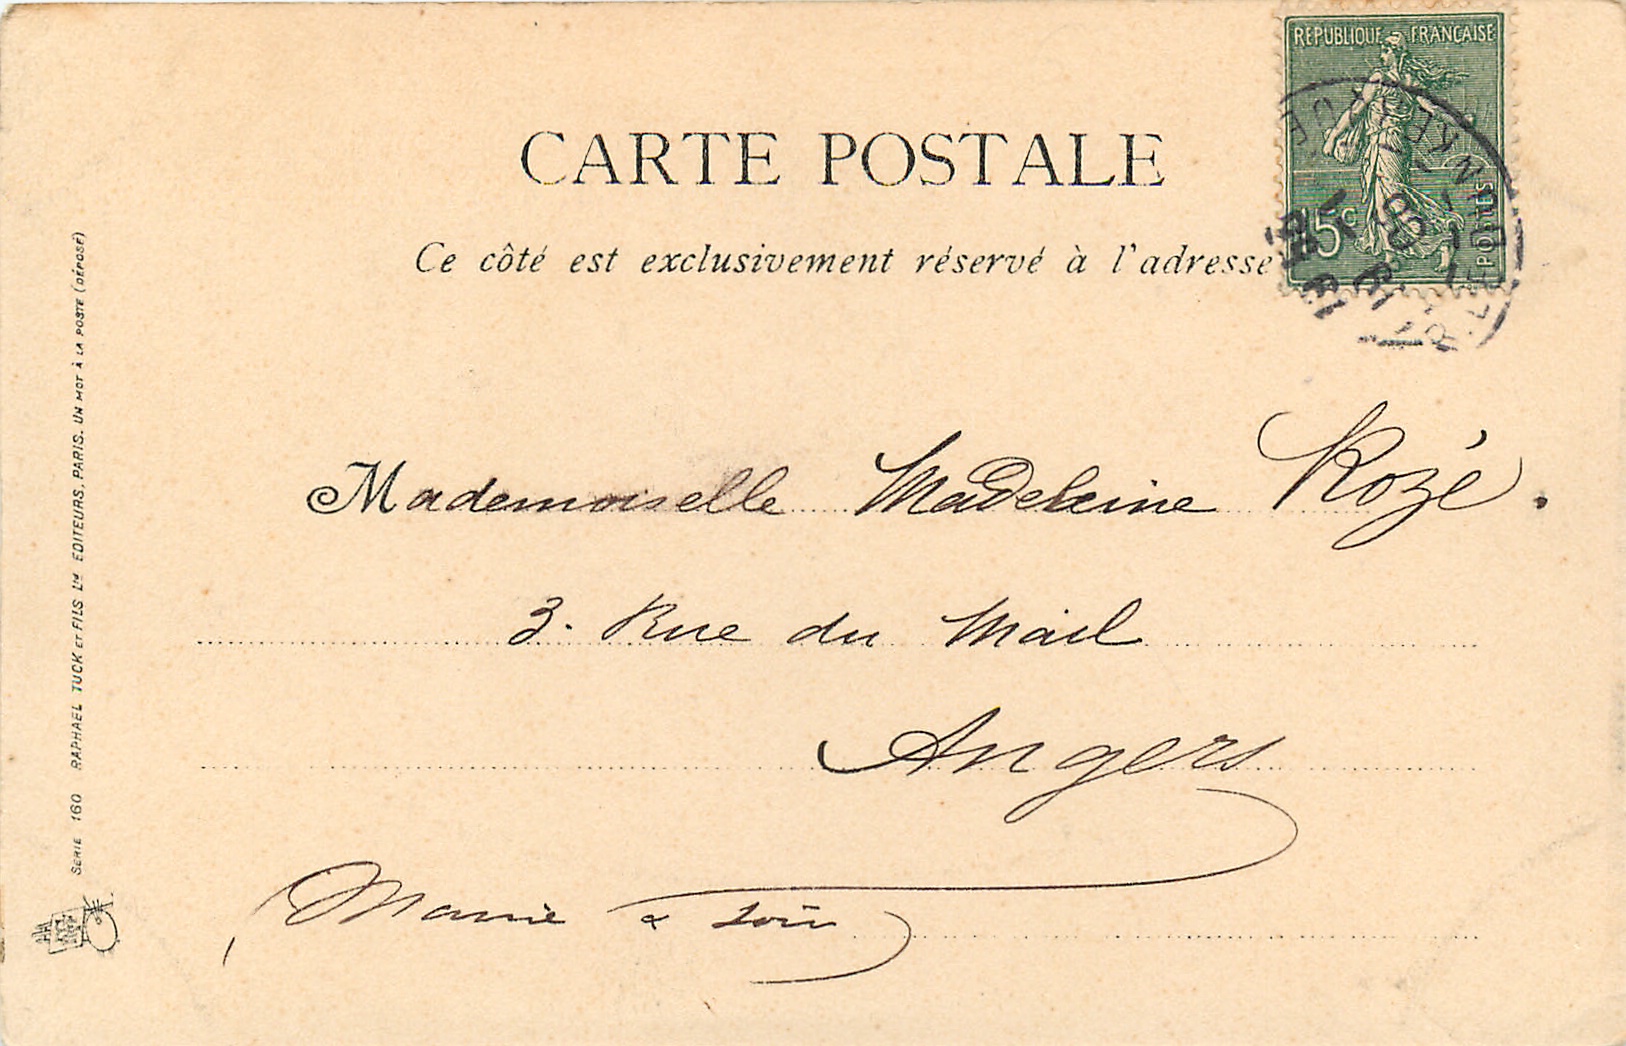 RÉPUBLIQUE FRANÇAISE
15c
POSTES
CARTE POSTALE
Ce côté est exclusivement réservé à l'adresse
Mademoiselle Madeleine Rozé.
3. Rue du Mail
Angers
SERIE 160 RAPHAEL TUCK ET FILS Ltd EDITEURS, PARIS. UN MOT À LA POSTE (DÉPOSÉ)